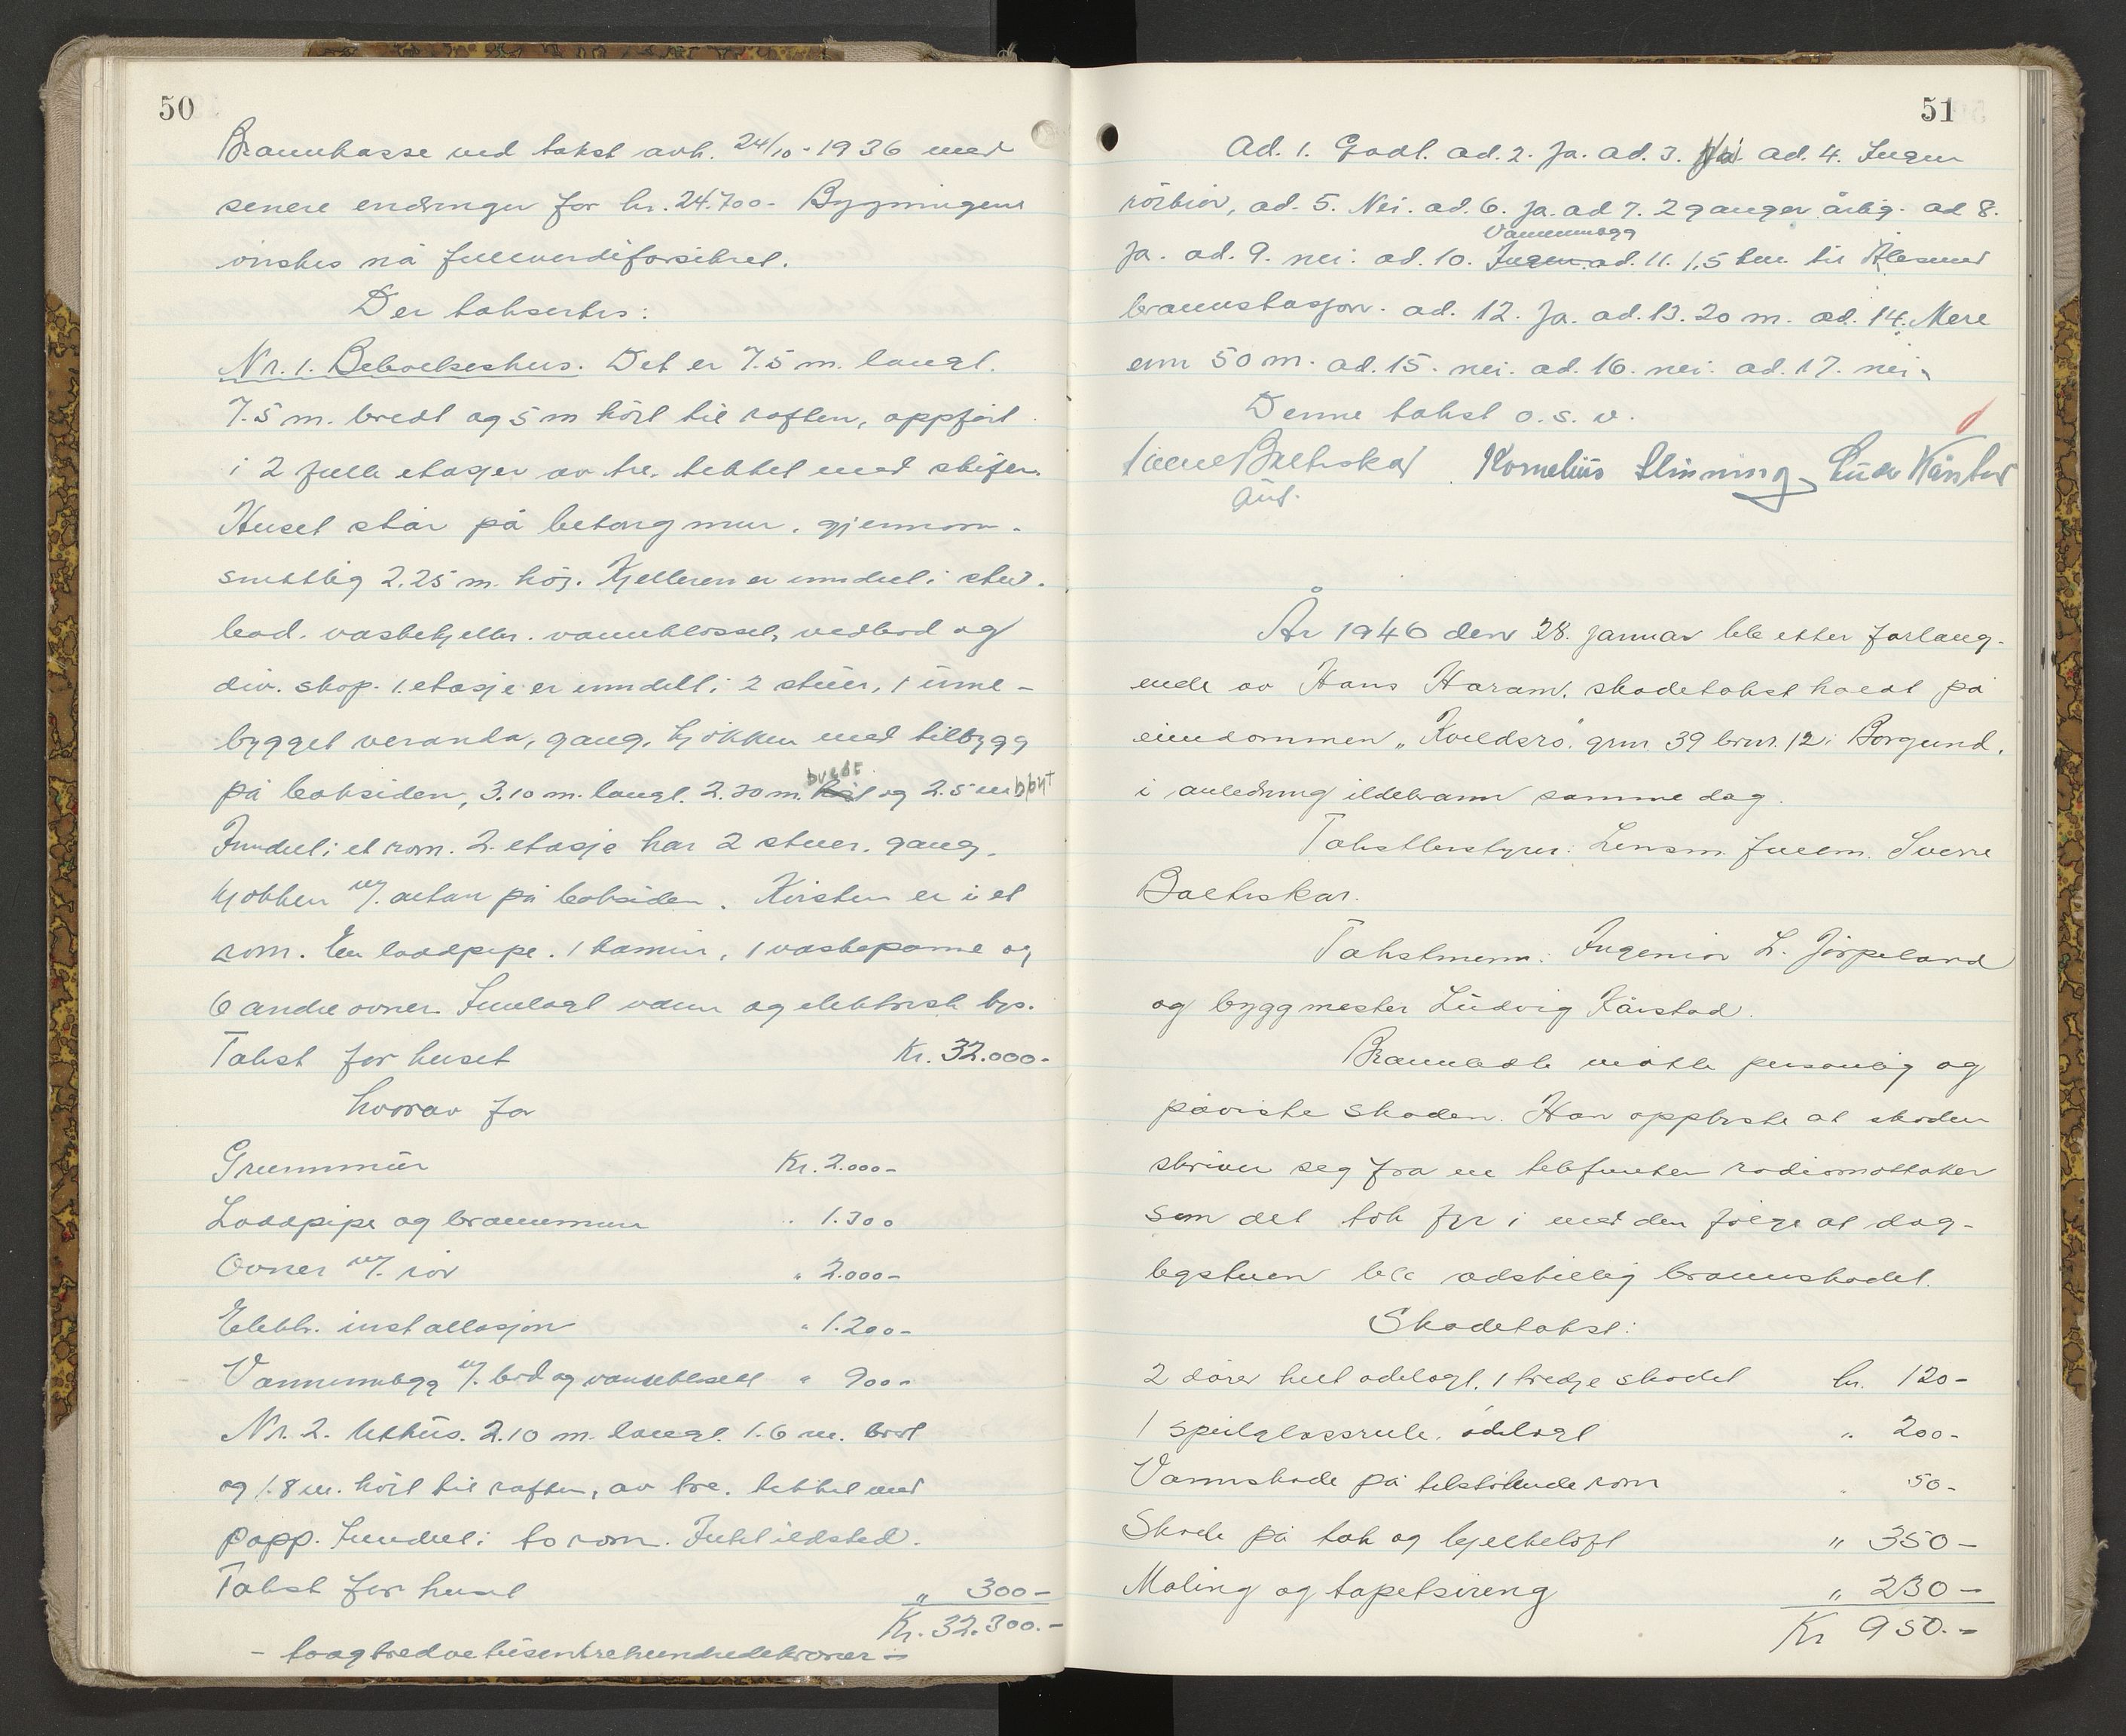 50
Brannkasse ved takst avh. 24/10-1936 med
senere endringer for kr. 24.700- Bygningene
ønskes nå fullverdiforsikret.
Der taksertes:
Nr. 1. Beboelseshus. Det er 7.5 m. langt.
7.5 m. bredt og 5 m høit til raften, oppført
i 2 fulle etasjer av tre, tekket med skifer.
Huset står på betong mur. gjennom-
snittlig 2.25 m. høi. Kjelleren er inndelt i stue.
bad. vaskekjeller. vannklosset, vedbod og
div. skap. 1. etasje er inndelt i 2 stuer, 1 inne-
bygget veranda, gang, kjøkken med tilbygg
på baksiden, 3.10 m. langt. 2.30 m. bredt og 2.5 m høyt
Inndelt i et rom. 2. etasje har 2 stuer. gang,
kjøkken m/. altan på baksiden. Kvisten er i et
rom. En laadpipe. 1 kamin, 1 vaskepanne og
6 andre ovner. Innlagt vann og elektrisk lys.
Takst for huset Kr. 32.000-
hvorav for
Grunnmur Kr. 2.000-
Laadpipe og brannmur " 1.300
Ovner m/. rør " 2.000-
Elektr. installasjon " 1.200-
Vanninnlegg m/. bad og vannklosett " 900-
Nr. 2. Uthus. 2.10 m. langt. 1.6 m. bredt
og 1.8 m. høit til raften, av tre. tekket med
papp. Inndelt i to rom. Intet ildsted.
Takst for huset " 300-
Kr. 32.300.-
- toogtredvetusentrehundredekroner -
51
Ad. 1. Godt. ad. 2. Ja. ad. 3. Nei ad. 4. Ingen
rørbior, ad. 5. Nei. ad. 6. Ja. ad 7. 2 ganger årlig. ad 8.
Vanninnlegg
Ja. ad. 9. nei. ad. 10. Ingen. ad. 11. 1,5 km. til Ålesund
brannstasjon. ad. 12. Ja. ad. 13. 20 m. ad. 14. Mere
enn 50 m. ad. 15. nei. ad. 16. nei. ad. 17. nei.
Denne takst o. s. v.
Sverre Balterskar Kornelius Slinning Ludv Kårstad
aut.
År 1946 den 28. januar ble etter forlang-
ende av Hans Haram, skadetakst holdt på
eiendommen „Kveldsro". gnr. 39 brnr. 12 i Borgund,
i anledning ildebrann samme dag.
Takstbestyrer: Lensm. fullm. Sverre
Balterskar.
Takstmenn: Ingeniør L. Jørpeland
og byggmester Ludvig Kårstad.
Brannlidte møtte personlig og
påviste skaden. Han opplyste at skaden
skriver seg fra en telefunken radiomottaker
som det tok fyr i med den følge at dag-
ligstuen ble adskillig brannskadet.
Skadetakst:
2 dører helt ødelagt, 1 tredje skadet kr. 120-
1 speilglassrute. ødelagt " 200-
Vannskade på tilstøtende rom " 50-
Skade på tak og bjelkeloft " 350-
Maling og tapetsering " 230-
Kr 950.-